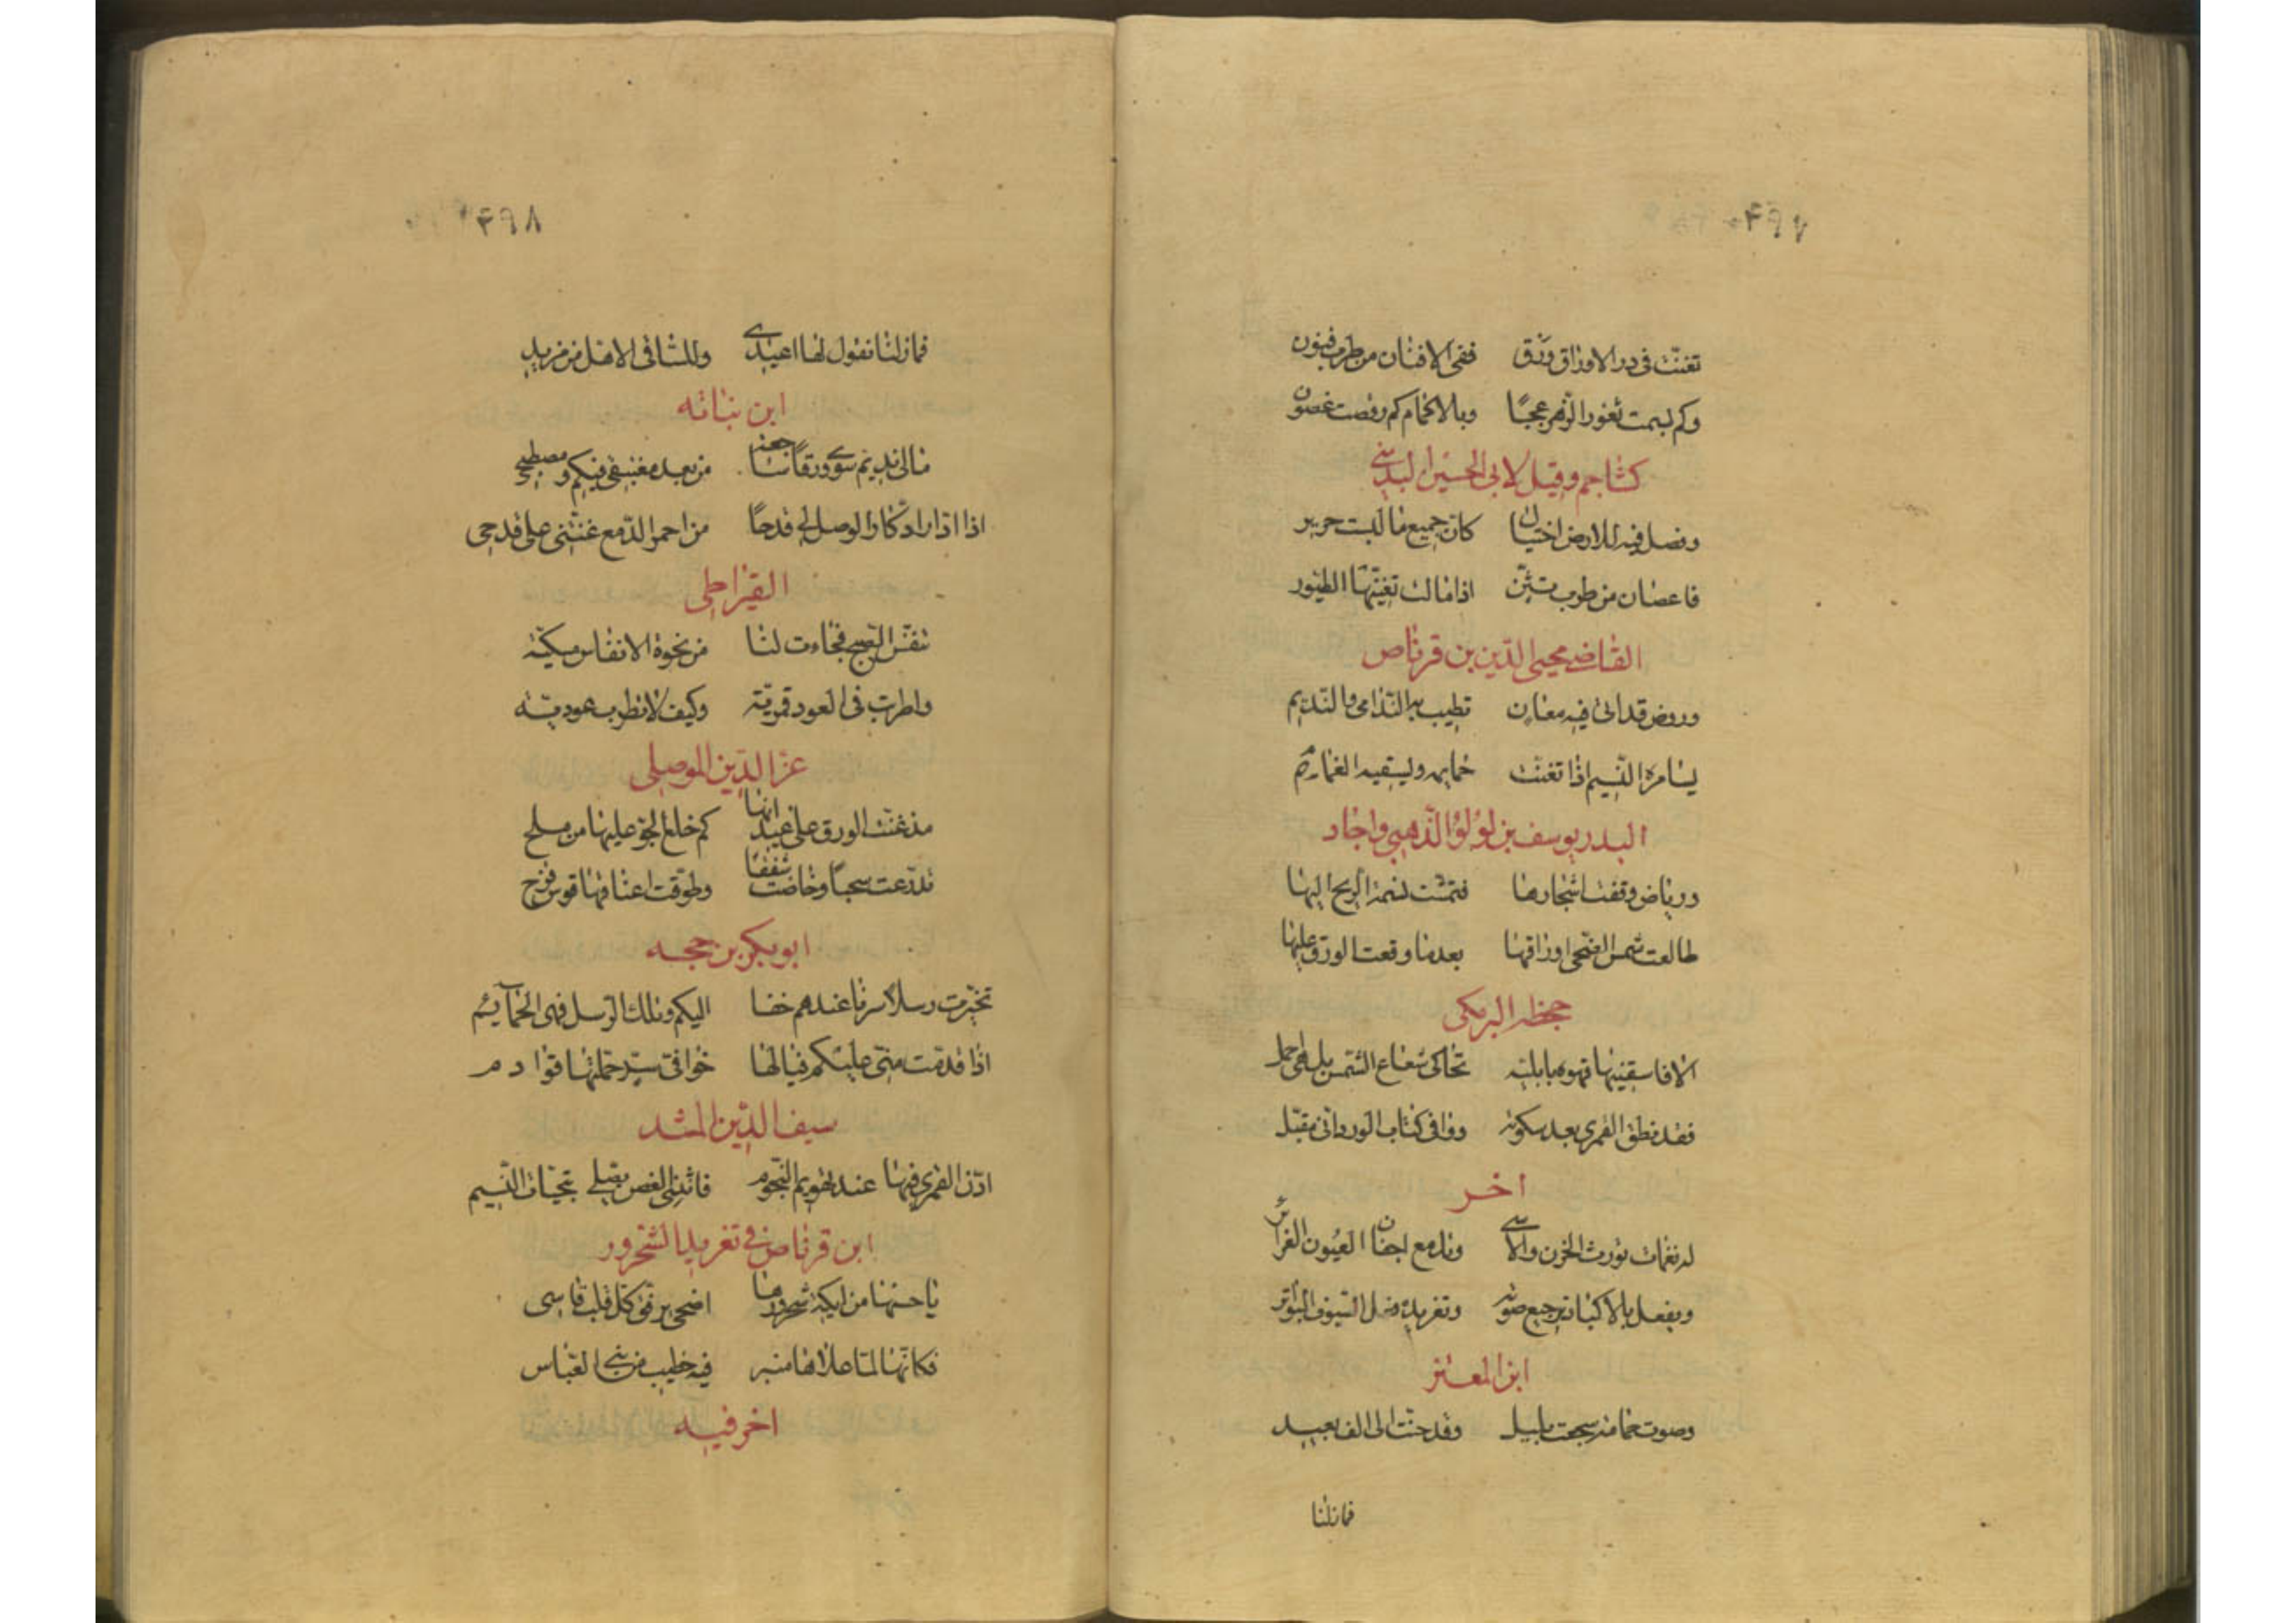 ۴۹۷
تغنت فی ذری الاوراق ورق ففی الافنان من طرب فنون
وکم بسمت ثغور الزهر عجبًا وبالاکمام کم رقصت غصون
کشاجم وقیل لابی الحسین البدیهی
وفصل فیه للارض اختیال کان جمیع ما لبست حریر
فاغصان من طرب تثنّی اذا مالت تغنّیها الطیور
القاضی محیی الدّین بن قرناص
وروض قد اتی فیه معان تطیب به الندامی والندیم
یسامره النّسیم اذا تغنت حمایمه ویسقیه الغمام
البدر یوسف بن لؤلؤ الذّهبی واجاد
وریاض وقفت اشجارها فتمشت نسمة الریح الیها
طالعت شمس الضحی اوراقها بعدما وقعت الورق علیها
جحظه البرمکی
الا فاسقنیها قهوه بابلیّه تحاکی شعاع الشمس بل هی
فقد نطق القمری بعد سکونه ووافی کتاب الورد انّی مقبل
اخر
له نغمات تورث الحزن والاسی وتدمع اجفان العیون الغزائر
ویفعل بالالباب ترجیع صوته وتغریده فعل السّیوف البواتر
ابن المعتز
وصوت حمامة سجعت بلیل وقد حنّت الی الف بعید
فمازلنا
۴۹۸
فمازلنا نقول لها اعیدی وللسّاقی الا هل من مزید
ابن نباته
مالی ندیم سوی ورقا ساجعة من بعد مغتبقی فیکم ومصطبحی
اذا ادار ادّکار الوصل لی قدحًا من احمر الدّمع غنّتنی علی قدحی
القیراطی
تنفّس الصّبح فجاءت لنا من نحوه الانفاس مسکیّه
واطربت فی العود قمریّة وکیف لا تطرب عودیّه
عزّ الدّین الموصلی
مذ غنّت الورق علی عیدانها کم خلع الجوّ علیها من ملح
تدرّعت سحبًا وخاضت شفقًا وطوّقت اعناقها قوس قزح
ابو بکر بن حجه
تخیّرت رسلا سرنا عندهم خفا الیکم وتلک الرّسل فهی الحمآیم
اذا قدمت منّی علیکم فیالها خوافی سرّ حملتها قوادم
سیف الدّین المشد
اذّن القمری فیها عند تهویم النّجوم فانثنی الغصن یصلی بتحیّات النّسیم
ابن قرناص فی تغرید الشحرور
یا حسنها من ایکة شحرورها اضحی یرقق کل قلب قاسی
فکانّها لمّا علاها منبر فیه خطیب من بنی العبّاس
اخر فیه